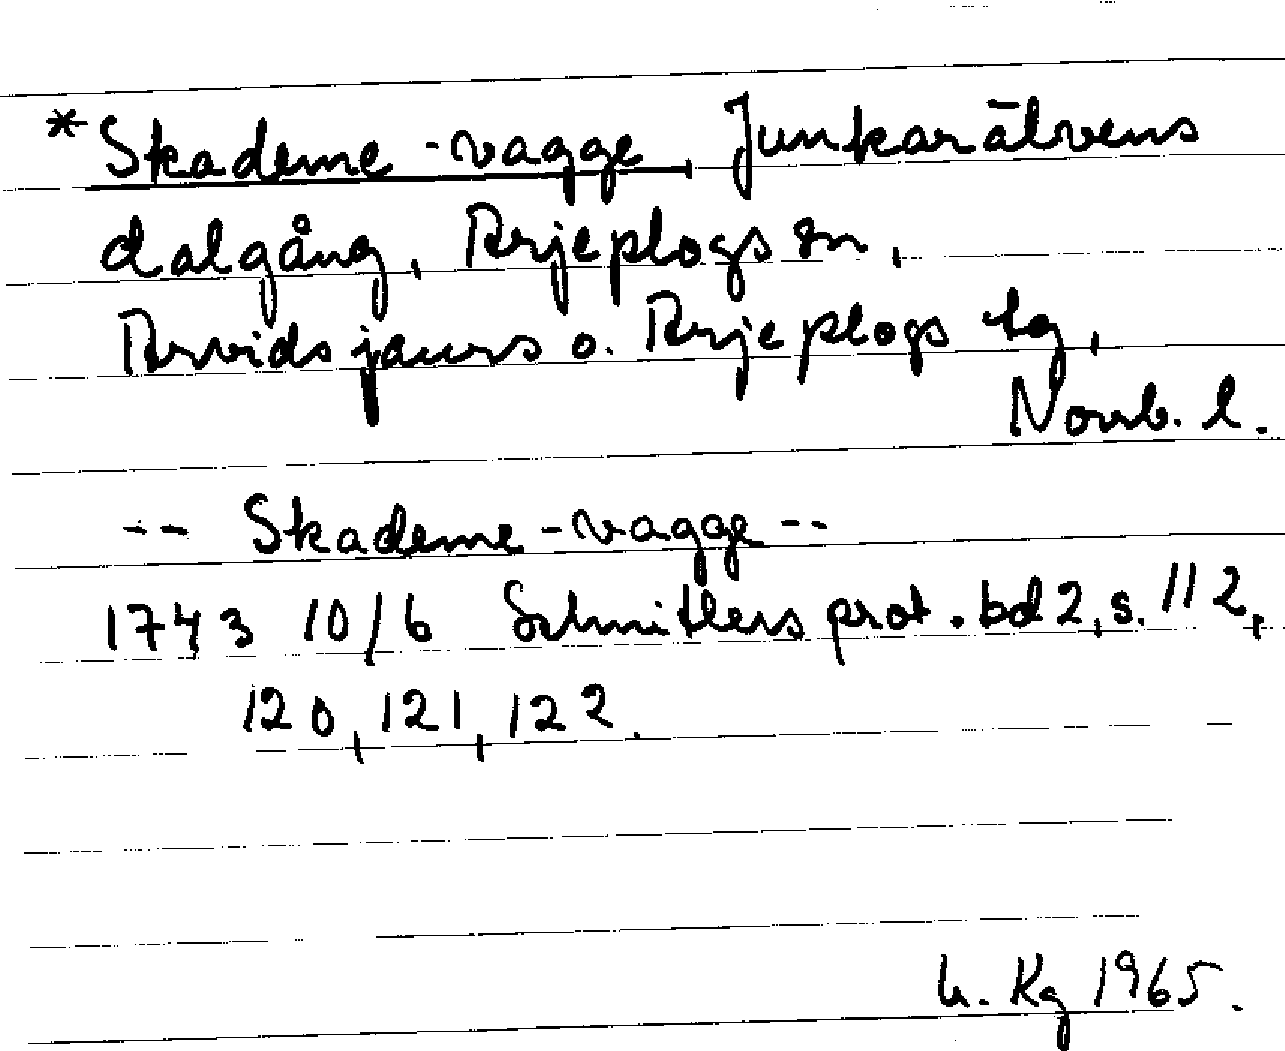 *Skademe-vagge, Junkarälvens
dalgång, Arjeplogs sn,
Arvidsjaurs o. Arjeplogs tg,
Norrb. l.
-- Skademe-vagge --
1743 10/6 Schnitlers prot. bd 2, s. 112,
120, 121, 122.
Kg 1965.